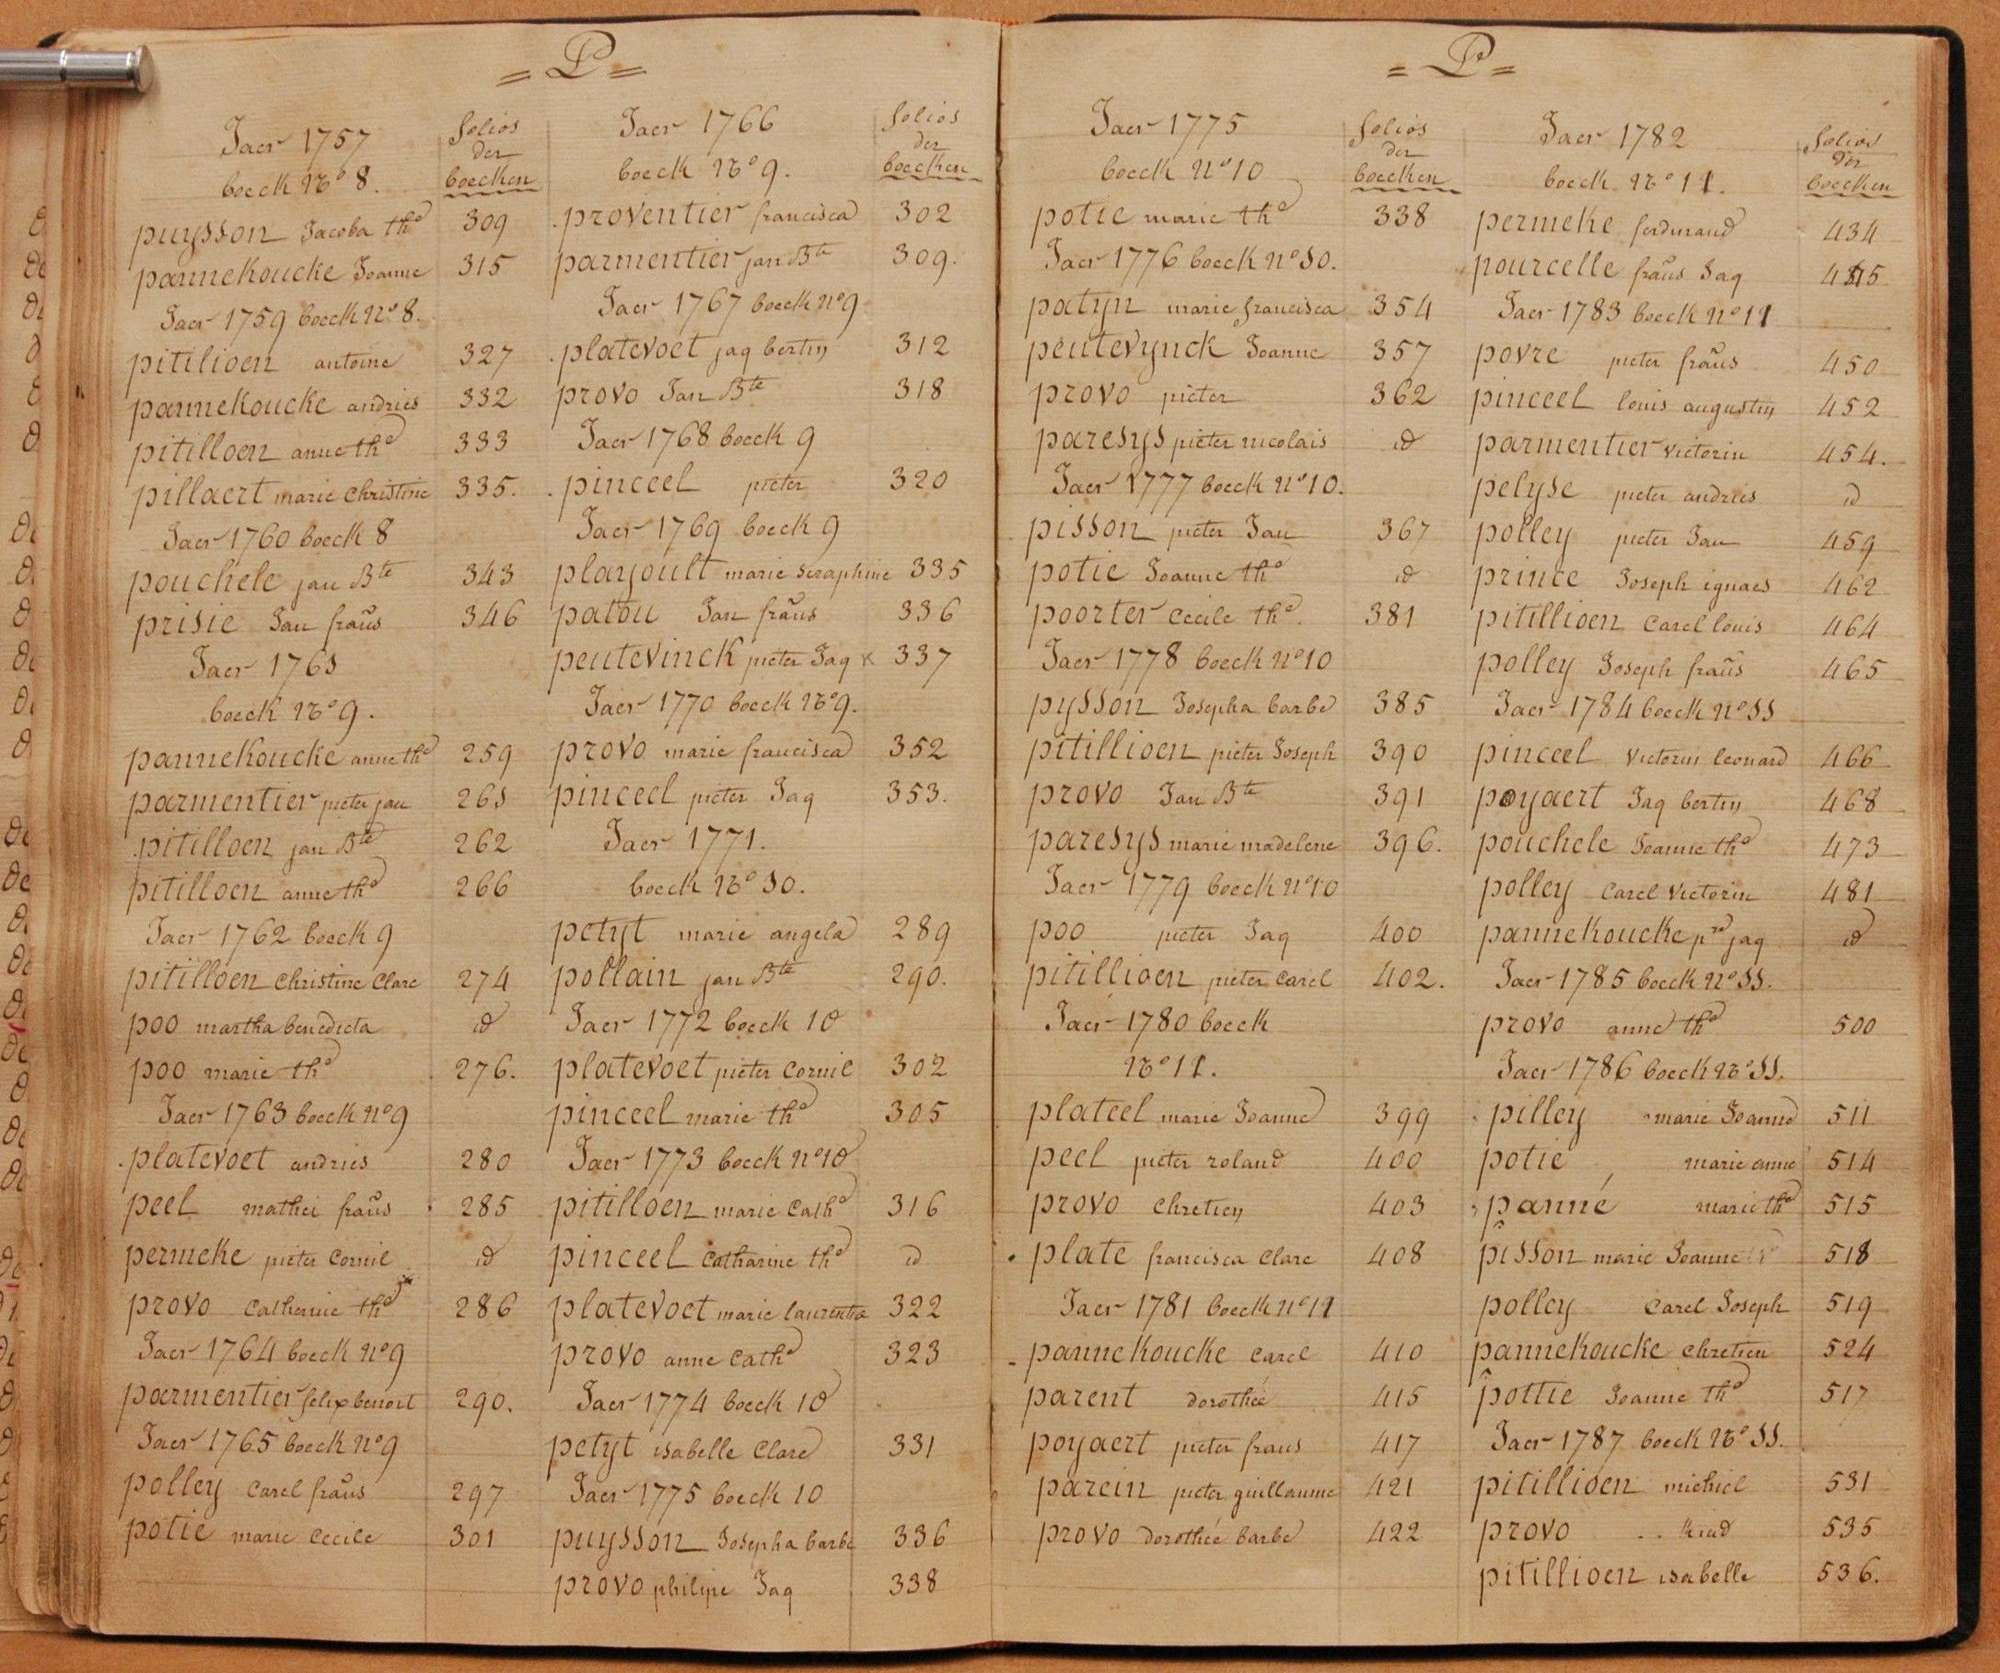 = P =
Jaer 1757
boeck No 8.
folios
der
boecken
puysson Jacoba the 309
pannekoucke Joanne 315
Jaer 1759 boeck No 8.
pitilioen antoine 327
pannekoucke andries 332
pitilloen anne the 333
pillaert marie christine 335.
Jaer 1760 boeck 8
pouchele jan Bte 343
prisie Jan frans 346
Jaer 1761
boeck No 9.
pannekoucke anne the 259
parmentier pieter jan 261
pitilloen jan Bte 262
pitilloen anne the 266
Jaer 1762 boeck 9
pitilloen christine clare 274
poo martha benedicta id
poo marie the 276.
Jaer 1763 boeck No 9
platevoet andries 280
peel mathei frans 285
permeke pieter cornil id
provo catherine the 286
Jaer 1764 boeck No 9
parmentier felix benoit 290.
Jaer 1765 boeck No 9
polley carel frans 297
potie marie cecile 301
Jaer 1766
boeck No 9.
folios
der
boecken
proventier francisca 302
parmentier jan Bte 309.
Jaer 1767 boeck No 9
platevoet jaq bertin 312
provo Jan Bte 318
Jaer 1768 boeck 9
pinceel pieter 320
Jaer 1769 boeck 9
playoult marie seraphine 335
patou Jan frans 336
peutevinck pieter Jaq x 337
Jaer 1770 boeck No 9.
provo marie francisca 352
pinceel pieter Jaq 353.
Jaer 1771.
boeck No 10.
petyt marie angela 289
pollain jan Bte 290.
Jaer 1772 boeck 10
platevoet pieter cornil 302
pinceel marie the 305
Jaer 1773 boeck No 10
pitilloen marie cathe 316
pinceel catharine the id
platevoet marie laurentia 322
provo anne cathe 323
Jaer 1774 boeck 10
petyt isabelle clare 331
Jaer 1775 boeck 10
puysson Josepha barbe 336
provo philipe Jaq 338
= P =
Jaer 1775
boeck No 10
folios
der
boecken
potie marie the 338
Jaer 1776 boeck No 10.
patyn marie francisca 354
peutevynck Joanne 357
provo pieter 362
paresys pieter nicolais id
Jaer 1777 boeck No 10.
pisson pieter Jan 367
potie Joanne the id
poorter cecile the. 381
Jaer 1778 boeck No 10
pysson Josepha barbe 385
pitillioen pieter Joseph 390
provo Jan Bte 391
paresys marie madelene 396.
Jaer 1779 boeck No 10
poo pieter Jaq 400
pitillioen pieter carel 402.
Jaer 1780 boeck
No 11.
plateel marie Joanne 399
peel pieter roland 400
provo chretien 403
plate francisca clare 408
Jaer 1781 boeck No 11
pannekoucke carel 410
parent dorothée 415
poyaert pieter frans 417
parein pieter guillaume 421
provo dorothée barbe 422
Jaer 1782
boeck No 11.
folios
der
boecken
permeke ferdinand 434
pourcelle frans Jaq
Jaer 1783 boeck No 11
povre pieter frans 450
pinceel louis augustin 452
parmentier victorin 454.
pelyse pieter andries id
polley pieter Jan 459
prince Joseph ignaes 462
pitillioen carel louis 464
polley Joseph frans 465
Jaer 1784 boeck No 11
pinceel victorin leonard 466
poyaert Jaq bertin 468
pouchele Joanne the 473
polley carel victorin 481
pannekoucke pre jaq id
Jaer 1785 boeck No 11.
provo anne the 500
Jaer 1786 boeck No 11.
pilley marie Joanne 511
potie marie anne 514
panné marie the 515
pisson marie Joanne 518
polley carel Joseph 519
pannekoucke chretien 524
pottie Joanne the 517
Jaer 1787 boeck No 11.
pitillioen michiel 531
provo .. kind 535
pitillioen isabelle 536.